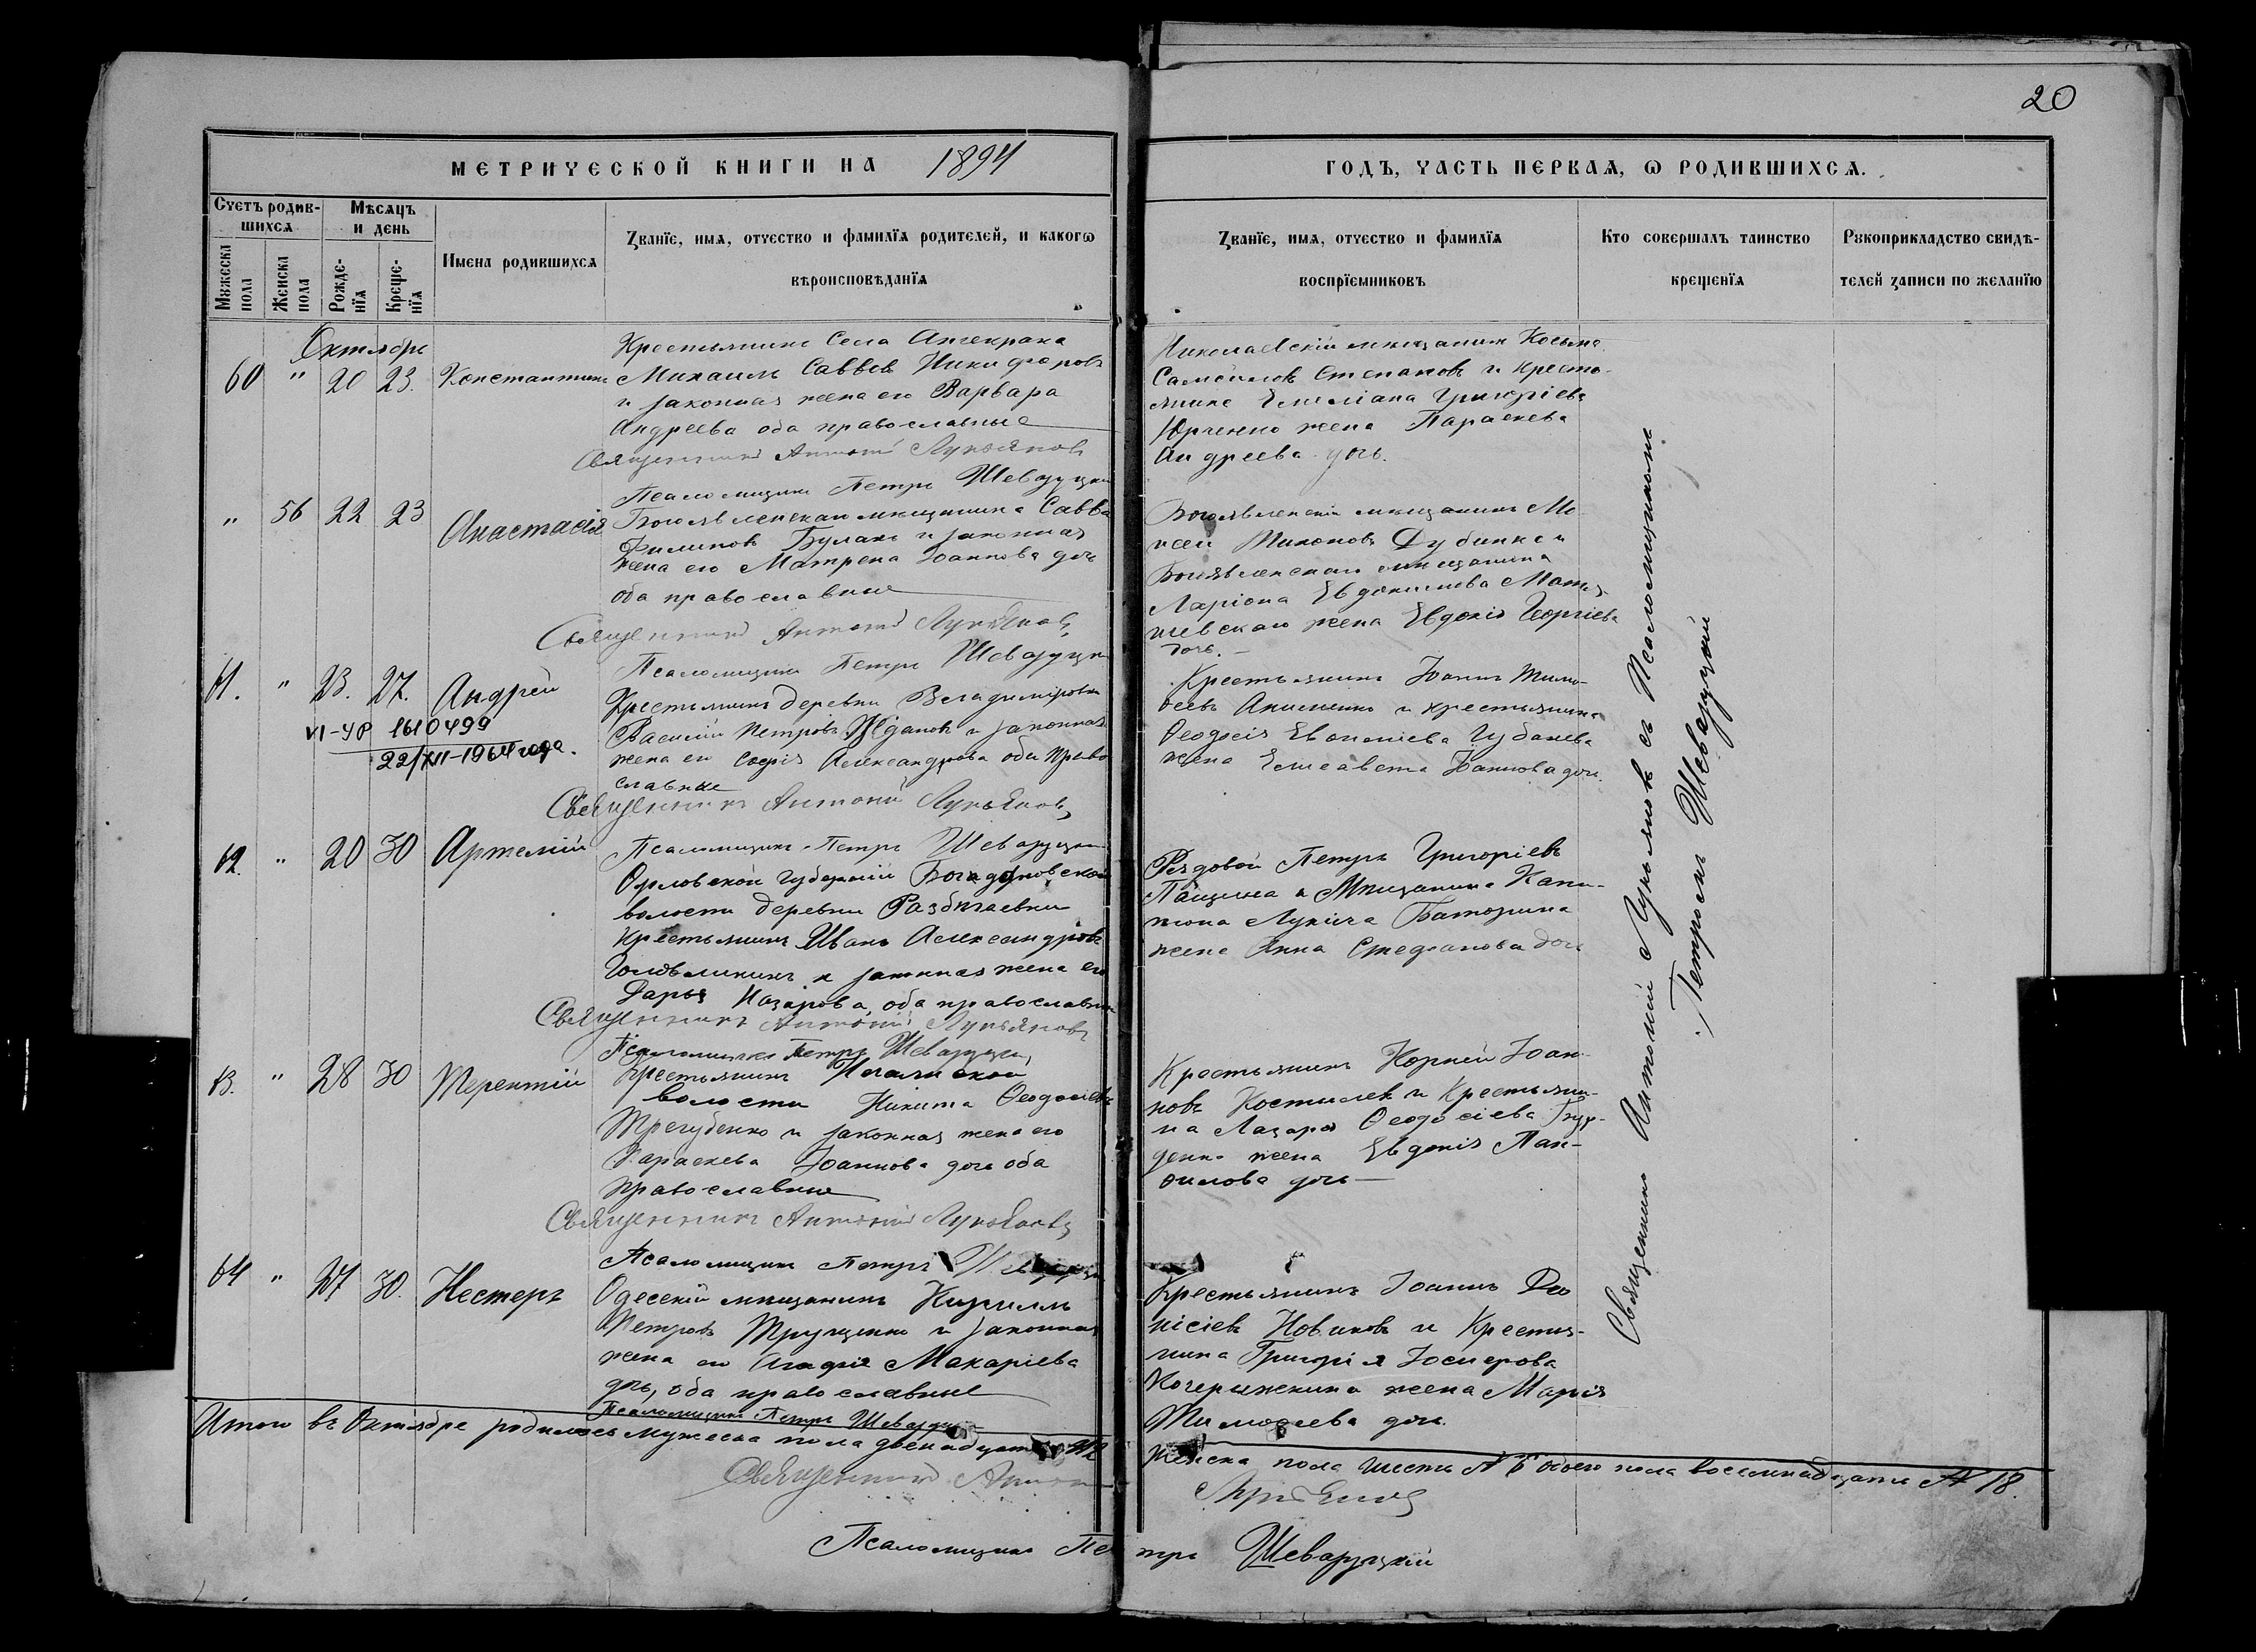 20
МЕТРИЧЕСКОЙ КНИГИ НА 1894
ГОДЪ, ЧАСТЬ ПЕРВАЯ, Ѡ РОДИВШИХСѦ.
Счетъ родив-
шихсѧ
Мѣсѧцъ
и день
Мꙋжеска
пола
Женска
пола
Рожде-
нїѧ
Креще-
нїѧ
Имена родившихсѧ
Званїе, имѧ, отчество и фамилїѧ родителей, и какогѡ
вѣроисповѣданїѧ
Званїе, имѧ, отчество и фамилїѧ
воспрїемниковъ
Кто совершалъ таинство
крещенїѧ
Рꙋкоприкладство свидѣ-
телей записи по желанїю
Октябрь
60 " 20 23. Константинъ
Крестьянинъ Села
Михаилъ Саввовъ Никифоровъ
и законная жена его Варвара
Андреева оба православные
Священникъ Антоній Лукьяновъ
Псаломщикъ Петръ Шеваруцкій
Николаевскій мѣщанинъ Косьма
Самойловъ Степановъ и Кресть-
янина Емеліана Григоріева
Юрченко жена Параскева
Андреева дочь.
" 56 22 23 Анастасія
Богоявленскаго мѣщанина Савва
Филиповъ Булахъ и законная
жена его Матрена Іоаннова дочь
оба православные
Священникъ Антоній Лукьяновъ
Псаломщикъ Петръ Шеваруцкій
Богоявленскій мѣщанинъ Мо-
исей Тихоновъ Дубинка и
Богоявленскаго мѣщанина
Ларіона Евдокимова
жена Евдокія Георгіева
дочь.
61. " 23. 27. Андрей
VI-УР 1610499
22/XII-1964 года.
Крестьянинъ деревни Владиміровки
Василій Петровъ Ждановъ и законная
жена его Софія Александрова оба право
славные
Священникъ Антоній Лукьяновъ
Псаломщикъ Петръ Шеваруцкій
Крестьянинъ Іоаннъ Тимо-
ѳеевъ Акименко и крестьянина
Ѳеодосія Евѳиміева Губанева
жена Елисавета Іоаннова дочь.
62. " 20 30 Артемій
Орловской губерніи
волости деревни Разбѣгаевки
Крестьянинъ Иванъ Александровъ
и законная жена его
Дарья Назарова, оба православные
Священникъ Антоній Лукьяновъ
Псаломщикъ Петръ Шеваруцкій
Рядовой Петръ Григоріевъ
и Мѣщанина Капи-
тона Лукича Баторина
жена Анна Стефанова дочь
63. " 28 30 Терентій
Крестьянинъ
волости Никита Ѳеодосіевъ
Трегубенко и законная жена его
Параскева Іоаннова дочь оба
православные
Священникъ Антоній Лукьяновъ
Псаломщикъ Петръ
Крестьянинъ Корній Іоан-
новъ и Крестьяни-
на Лазаря Ѳеодосіева
жена Евдокія Пан-
филова дочь
64 " 27 30. Несторъ
Одесскій мѣщанинъ Кириллъ
Петровъ и законная
жена его Агафія Макаріева
дочь, оба православные
Псаломщикъ Петръ Шеваруцкій
Крестьянинъ Іоаннъ Дио
нісіевъ Новиковъ и Крестья-
нина Григорія
Кочерыжкина жена Марія
Тимоѳеева дочь.
Священникъ Антоній Лукьяновъ съ Псаломщикомъ
Петромъ Шеваруцкій
Итого въ Октябрѣ родилось мужеска пола двенадцать 12
женска пола шесть № 6 обоего пола восемнадцать № 18.
Священникъ Антоній Лукьяновъ
Псаломщикъ Петръ Шеваруцкій